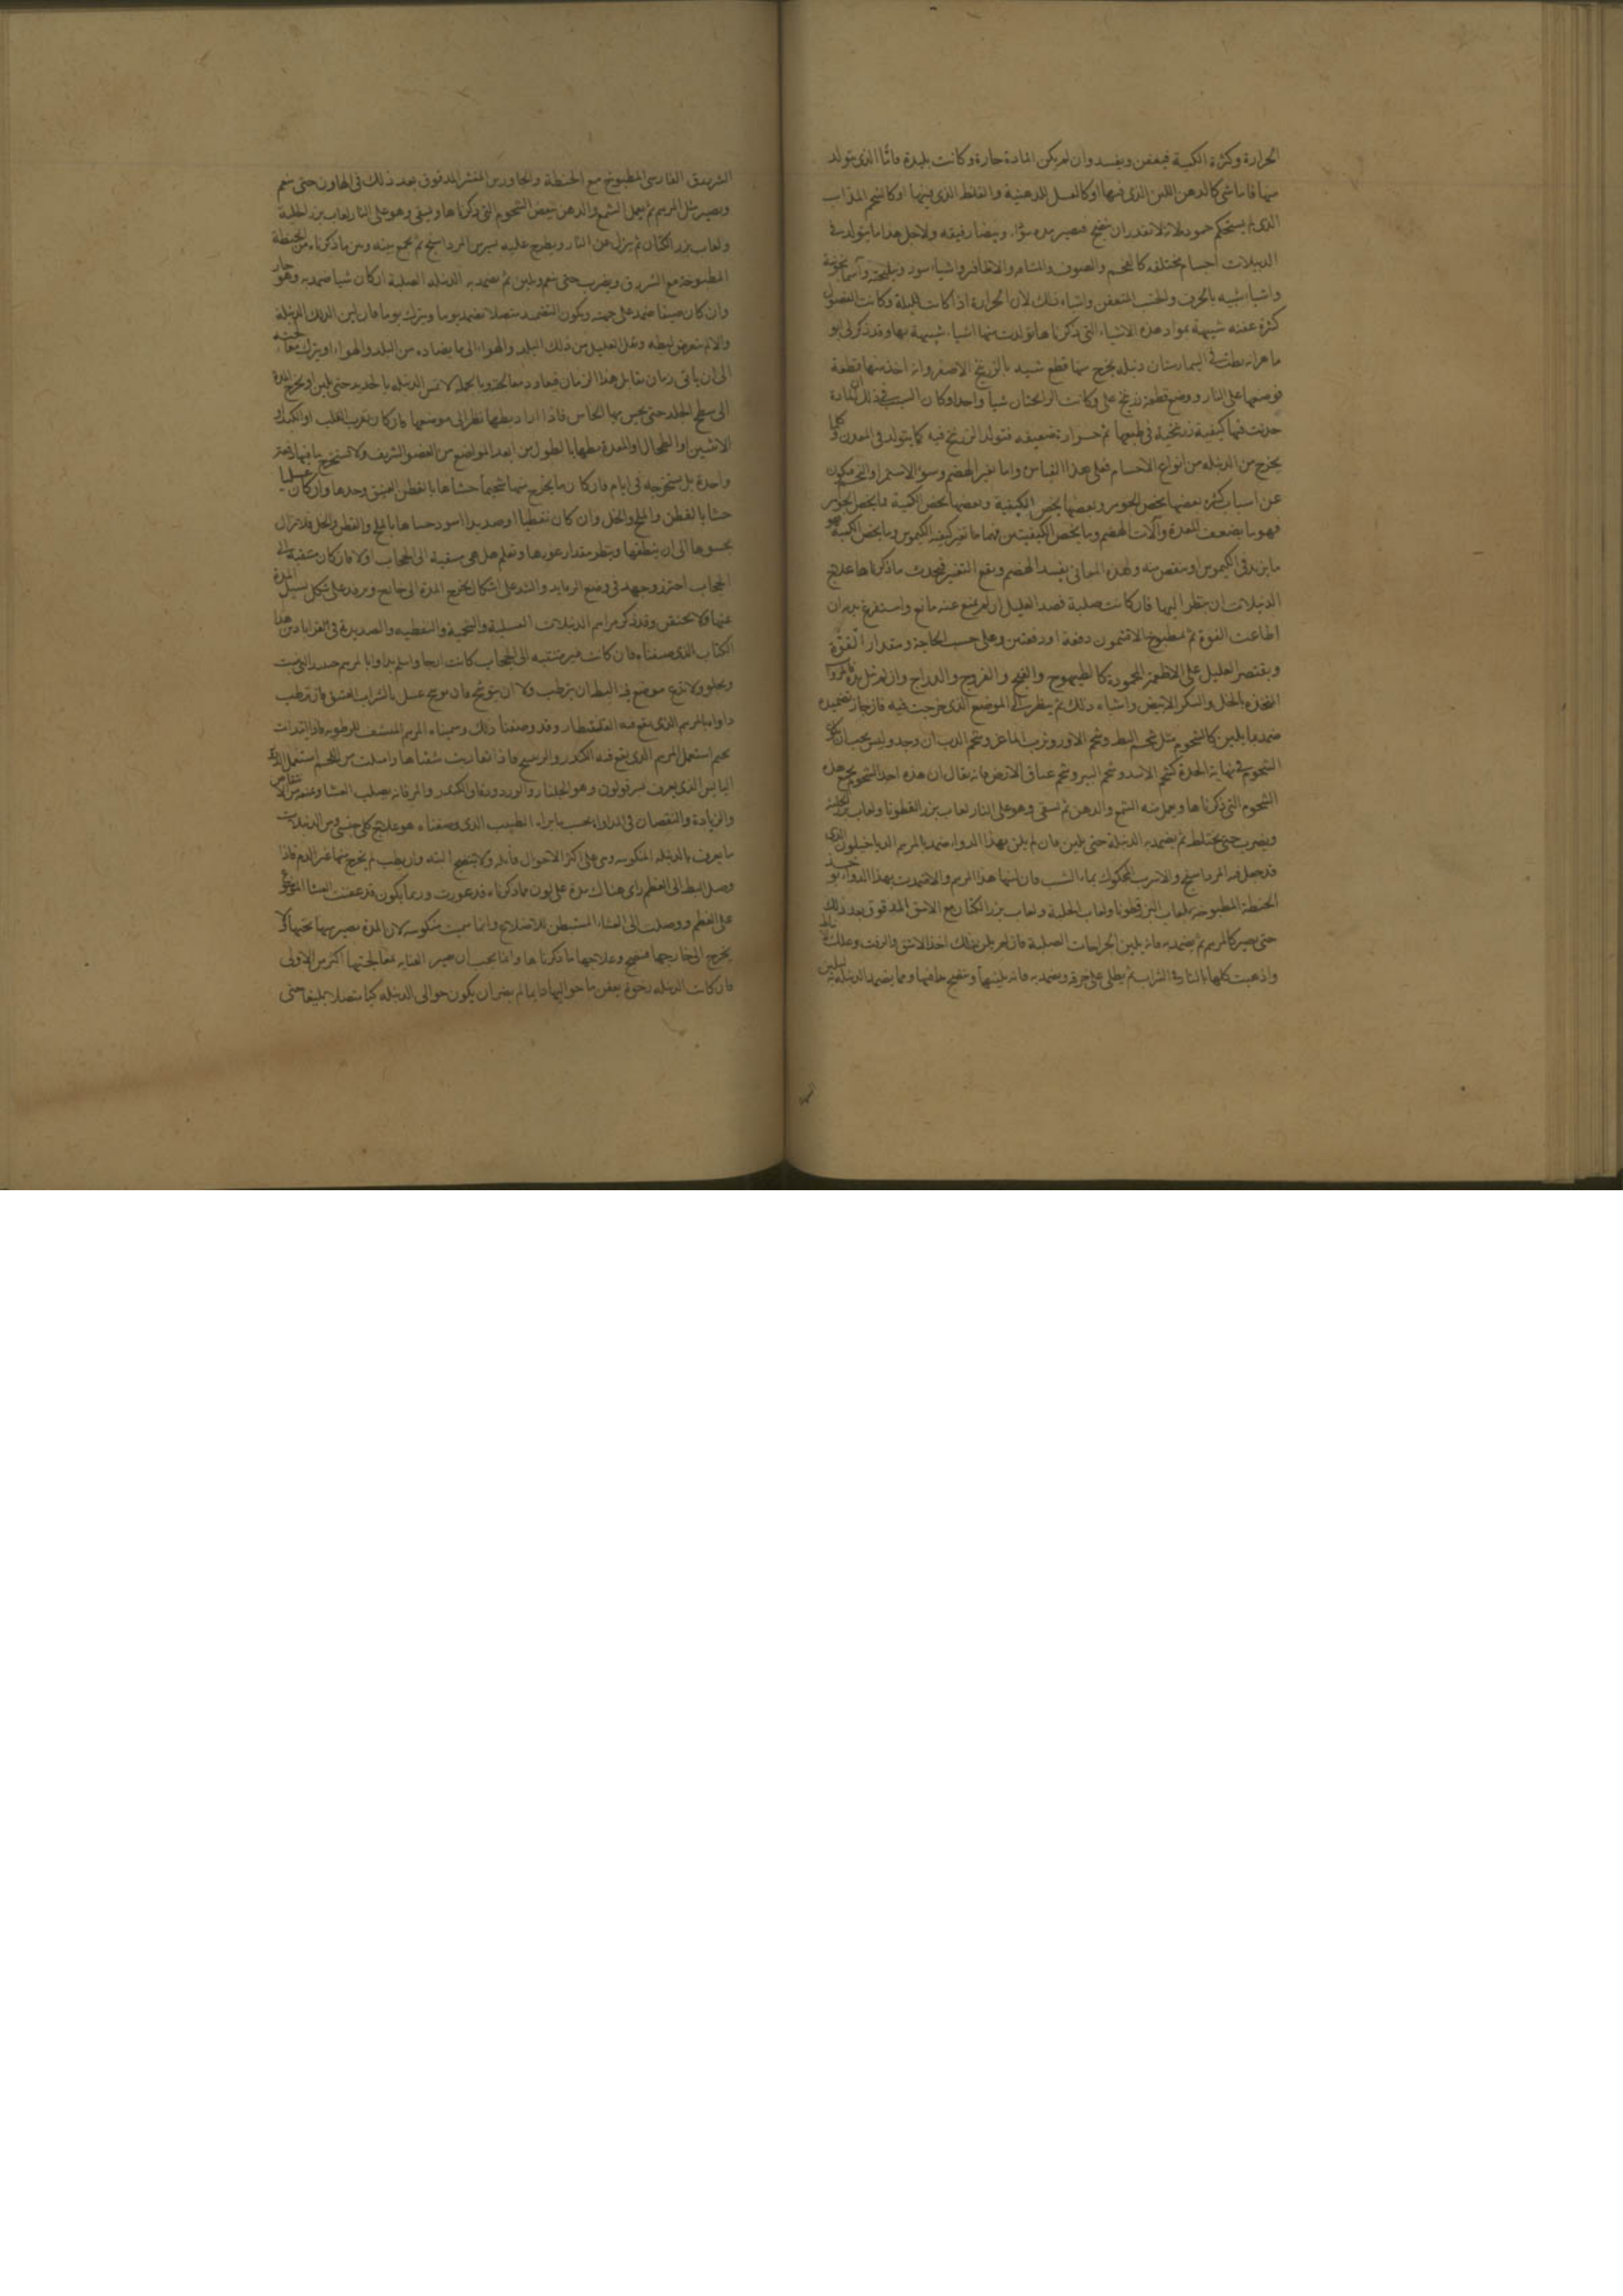 الحرارة وكثرة الكمية فيعفن ويفسد وان لم يكن المادة حارة وكانت بليدة فاما الذى يتولد
منها فاما شى كالدهن اللين الذى فيها او كالعسل للدهنية والغلظ الذى فيها او كالشحم المذاب
الذى لم يستحكم جموده لانه لا تقدر ان ينضج فيصير مده سوداء وبيضا رقيقه ولاجل هذا ما يتولد فى
الدبيلات اجسام مختلفه كالفحم والصوف والاظافر واشيا سود
واشياء شبيه بالخزف والخشب المتعفن واشباه ذلك لان الحرارة اذا كانت قليلة وكانت الفضول
كثيرة عفنه شبيهة بمواد هذه الاشياء التى ذكرناها تولدت منها اشياء شبيهة بها وقد ذكر لى ابو
ماهر انه بطت فى البيمارستان دبيله يخرج منها قطع شبيه بالزرنيخ الاصفر وانه اخذ منها قطعة
فوضعها على النار ووضع قطعة زرنيخ على وكانت الرائحتان شيا واحدا وكان السبب فى ذلك ان المادة
حدثت فيها كيفية زرنيخية فى طبعها ثم حرارة ضعيفه فتولد الزرنيخ فيه كما يتولد فى المعدن وكلما
يخرج من الدبيله من انواع الاجسام فعلى هذا القياس واما تغير الهضم وسوء الاستمرا والتخم فيكون
عن اسباب كثيره بعضها يخص الجوهر وبعضها يخص الكيفية وبعضها يخص الكمية فما يخص الجوهر
فهو ما يضعف المعدة وآلات الهضم وما يخص الكيفيتين فيهما ما تغير كيفية الكيموس وما يخص الكمية فهو
ما يزيد فى الكيموس او ينقص منه ولهذه المعانى يفسد الهضم ويقع التغير فيحدث ما ذكرناها علاج
الدبيلات ان ينظر اليها فان كانت صلبة فصد العليل ان لم يمنع عنه مانع واستفرغ بدنه ان
اطاعت القوة ثم بمطبوخ الافتيمون دفعة او دفعتين وعلى حسب الحاجة ومقدار القوة
ويقتصر العليل على الاطعمة المحمودة كالطيهوج والقبج والفروج والدراج وان لم تنل يده
المتخذه بالخل والسكر الابيض واشباه ذلك ثم ينظر الى الموضع الذى خرجت فيه فان جاز تضميده
ضمد بما يلين كالشحوم مثل شحم البط وشحم الاوز وثرب الماعز وشحم الدب ان وجد وليس يجب ان
الشحوم فى نهاية الحدة كشحم الاسد وشحم الببر وشحم عناق الارض فانه يقال ان هذه احد الشحوم يجمع هذه
الشحوم التى ذكرناها ويعمل منه الشمع والدهن ثم يسقى وهو على النار لعاب بزر القطونا ولعاب بزر الحلبة
ويضرب حتى يختلط ثم يضمد به الدبيلة حتى يلين فان لم يلن بهذا الدواء ضمد بالمرهم الدياخيلون الذى
قد جعل فيه المرداسنج والاسرب المحكوك بماء الشب فان لينها هذا المرهم والا ضمدت بهذا الدواء يؤخذ
الحنطة المطبوخة بلعاب البزرقطونا ولعاب الحلبة ولعاب بزر الكتان مع الاشق المدقوق بعد ذلك
حتى يصير كالمرهم ثم يضمد به فانه يلين الجراحات الصلبة فان لم يلن بذلك اخذ الاشق والزفت وعلك
واذهبت كلها بالنار فى الشراب ثم يطلى على خرقة ويضمد به فانه يلينها وينضج ما فيها ومما يضمد الدبيله به لتلين
الشربدق الفارسى المطبوخ مع الحنطة والجاورس المقشر المدقوق بعد ذلك فى الهاون حتى ينعم
ويصير مثل المرهم ثم يعمل الشمع والدهن ببعض الشحوم التى ذكرناها ويسقى وهو على النار لعاب بزر الحلبة
ولعاب بزر الكتان ثم ينزل عن النار ويطرح عليه يسير من المرداسنج ثم يجمع بينه وبين ما ذكرناه من الحنطة
المطبوخة مع الشربدق ويضرب حتى ينعم ويلين ثم يضمد به الدبيله الصلبة ان كان شتا ضمد به وهو حار
وان كان صيفا ضمد على جهته ويكون التضميد متصلا تضمد يوما ويترك يوما فان لين ذلك الدبيلة
والا لم يتعرض لبطه ونقل العليل من ذلك البلد والهواء الى ما يضاده من البلد والهواء او يترك معالجته
الى ان ياتى زمان يقابل هذا الزمان فيعاود معالجته وبالجملة لا تمس الدبيله بالحديد حتى يلين او يخرج المدة
الى سطح الجلد حتى يحس بها الحاس فاذا اراد بطها نظر الى موضعها فان كان بقرب القلب او الكبد او
الانثيين او الطحال او المعدة بطها بالطول من ابعد المواضع من العضو الشريف ولا يستخرج ما فيها دفعة
واحدة بل يستخرجه فى ايام فان كان ما يخرج منها شحميا حشاها بالقطن العتيق وحدها وان كان عسليا
حشا بالقطن والملح والخل وان كان نفطيا او صديدا اسود حشاها بالملح والقطن والخل فلا يزال
يحشوها الى ان ينظفها وينظر مقدار غورها وتعلم هل هى منقبة الى الحجاب او لا فان كان منقبة الى
الحجاب احترز وجهد فى وضع الرفايد والشد على اشكال يخرج المدة الى خارج ويرقد على شكل يسيل المدة
عنها فلا يحتقن وقد ذكر مراهم الدبيلات العسلية والشحمية والنفطيه والصديدية فى القراباذين من هذا
الكتاب الذى صنفناه فان كانت غير منتقبه الى الحجاب كانت انجا واسلم يداوا بالمرهم حتى ينبت
ويجلو ولا يدع موضع فيه البط ان يترطب ولا ان يتوسخ فان توسخ غسل بالشراب العتيق فان ترطب
داواه بالمرهم الذى يقع فيه القلقطار وقد وصفنا ذلك وسميناه المرهم المنشف للرطوبه فاذا ابتدات
بختم استعمل المرهم الذى يقع فيه الكندر والراسخ فاذا تقاربت شفتاها وامتلت من اللحم استعمل
اليابس الذى يعرف وهو الجلنار والورد ودقاق الكندر والمر فانه يصلب الغشا وعنده تتفاضل
والزيادة والنقصان فى المداواه بحسب ما يراه الطبيب الذى وصفناه هو علاج كل جنس ومن الدبيلات
ما يعرف بالدبيله المنكوسه وهى على اكثر الاحوال قاتله ولا تنضج البته وان بطت لم يخرج منها غير الدم فاذا
وصل البط الى العظم راى هناك مدة على لون ما ذكرناه قد غورت وربما يكون قد عفنت الغشا الموضوع
على العظم ووصلت الى الغشاء المستبطن للاضلاع وانما سميت منكوسه لان المدة تصير بها تحتها لا
يخرج الى خارجها فتنضج وعلاجها ما ذكرناها وانما يجب ان يصير العنايه بمعالجتها اكثر من الاولى
فان كانت الدبيله رخوة يعفن ما حواليها فانما لم يضر ان يكون حوالى الدبيله كيا متصلا بليغا حتى